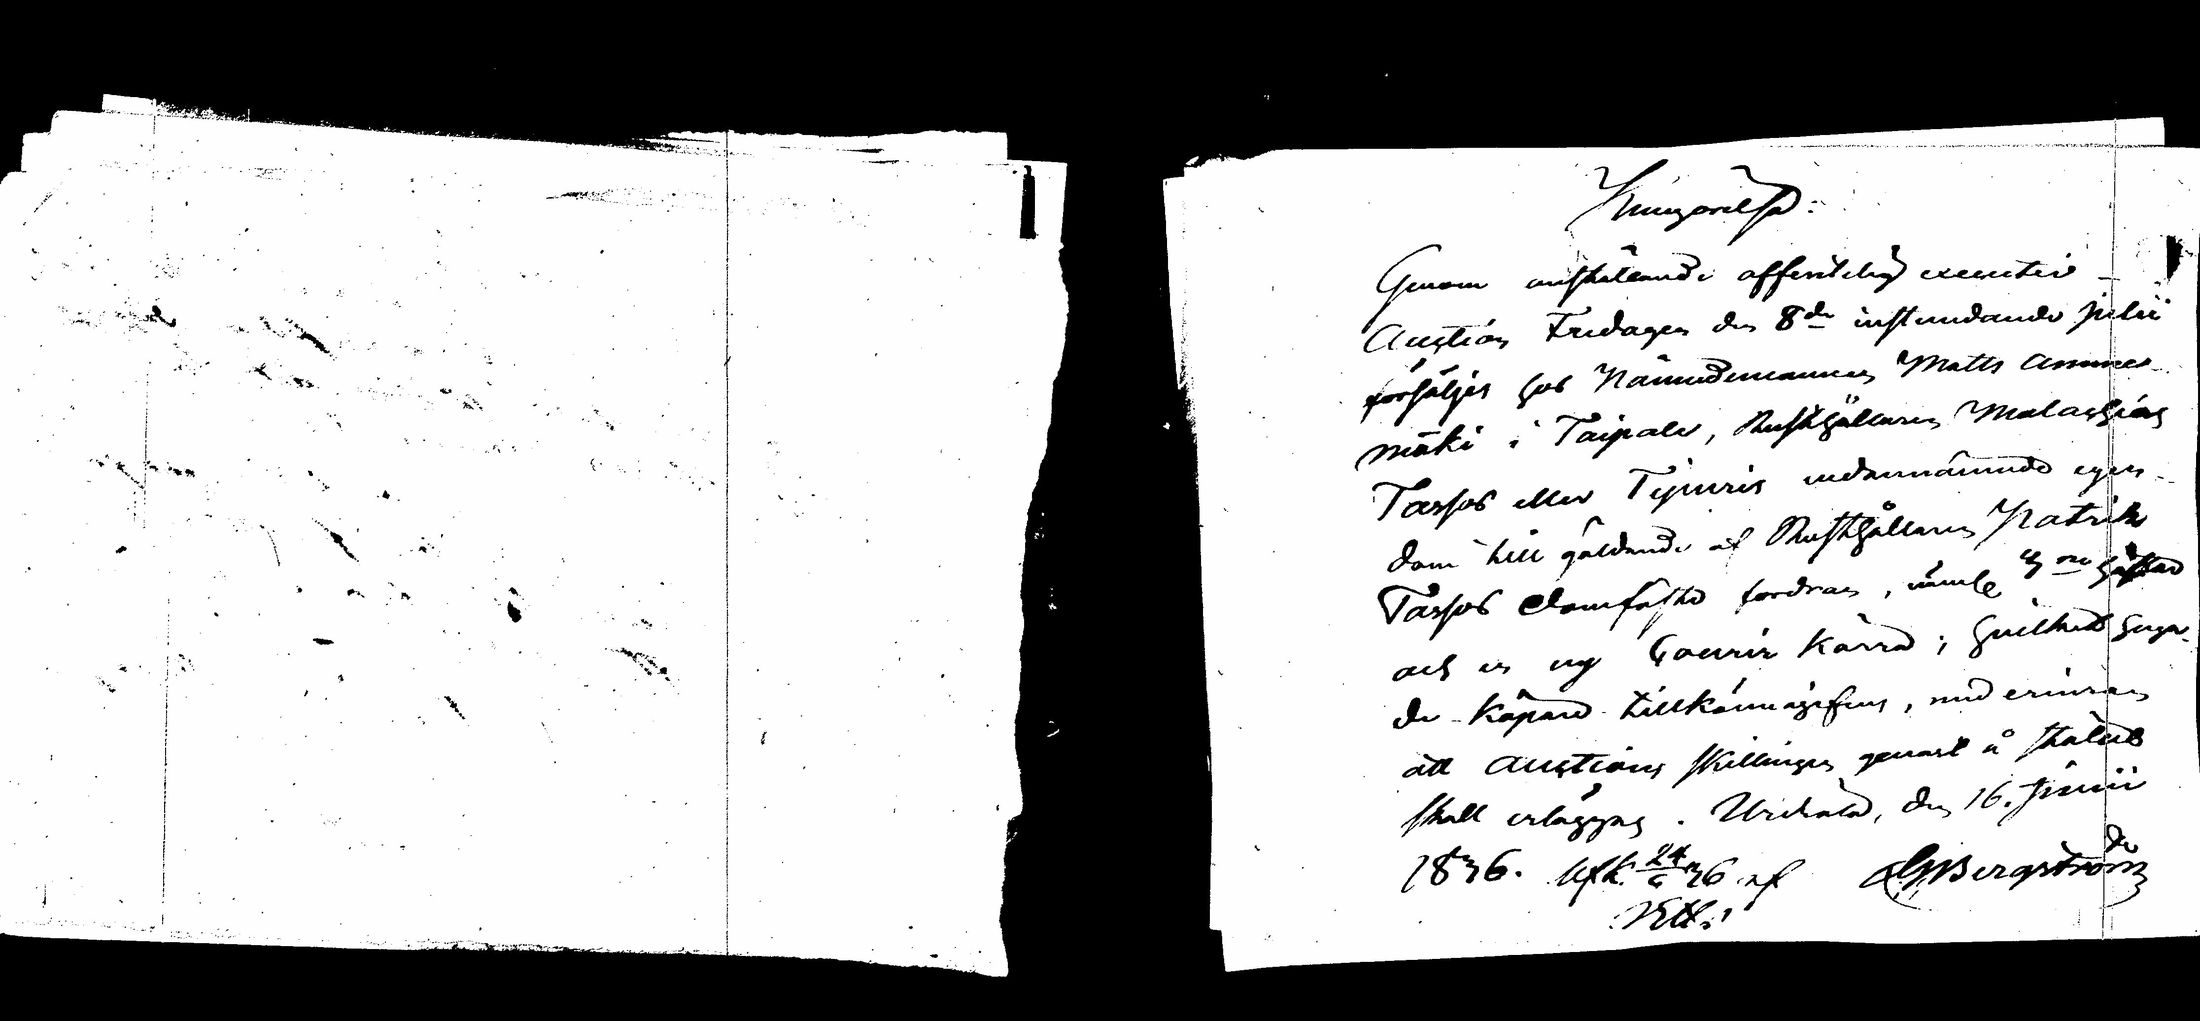 Kungörelse:
Genom anställande offentelig executiv
Auction Fredagen den 8de instundande Julii
försäljes hos Nämndemannen Matts Anune-
mäki i Taipale, Rusthållaren Malachias
Tarpos eller Tijuris nedannämnde egen-
dom till gäldande af Rusthållaren Patrik
Tarpos domfäste fordran, neml. en
och en ny Kärra; hvilket huga-
de köpare tillkännagifves, med erinran
att Auctions skillingen genast å stället
skall erläggas. Urdiala, den 16. Junii
1836. Uppk. 24/6 36 af CG Bergström